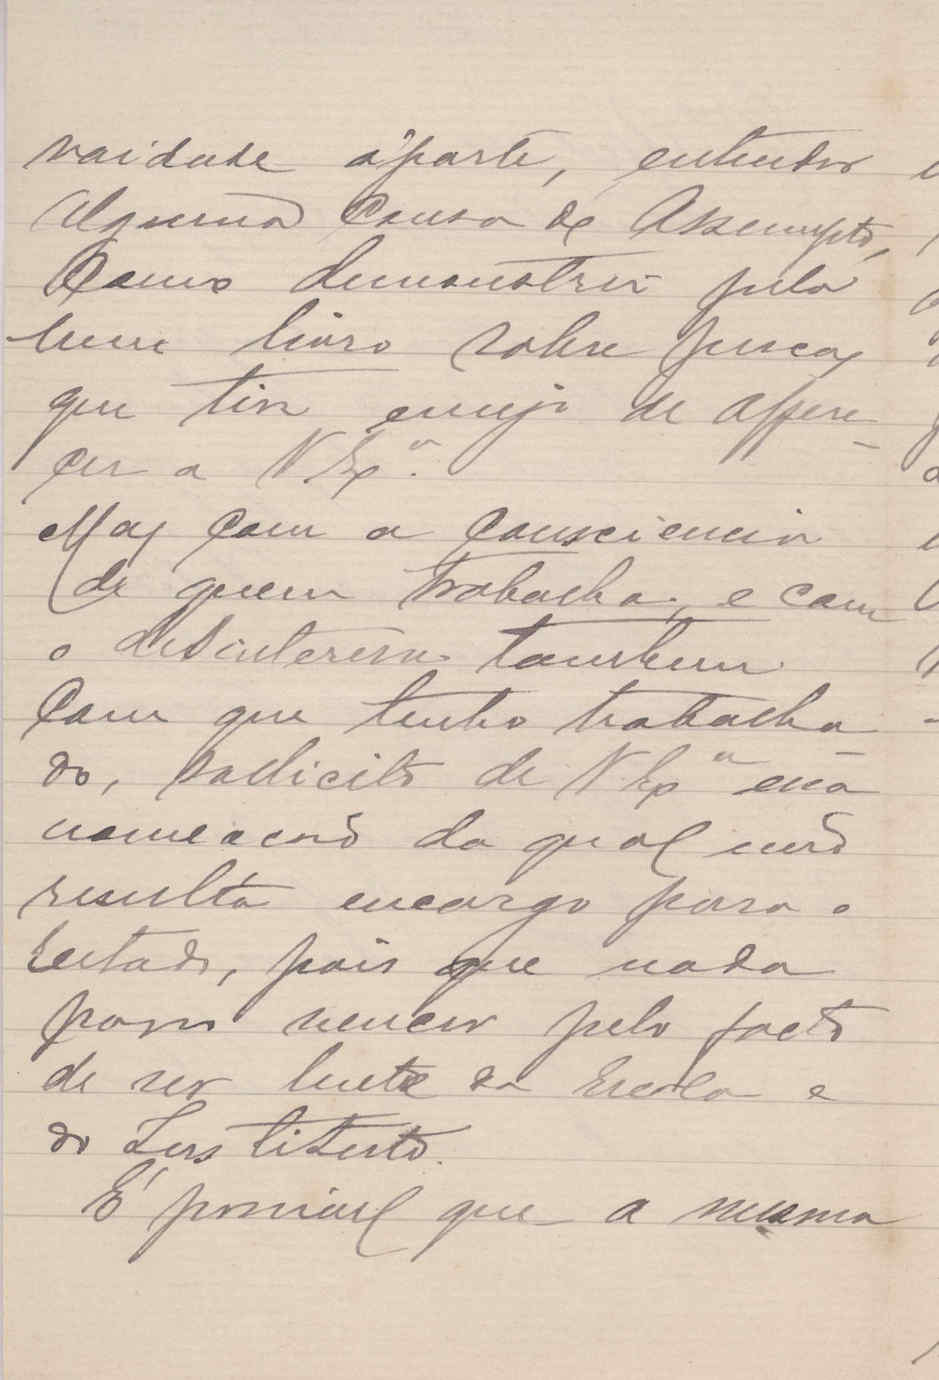 vaidade áparte, entendo
alguma cousa do assumpto,
como demonstrei pelo
meu livro sobre pescas
que tive ensejo de offere-
cer a V Exª.
Mas com a consciencia
de quem trabalha, e com
o desinteresse tambem
com que tenho trabalha-
do, sollicito de V Exª essa
nomeacaõ da qual naõ
resulta encargo para o
Estado, pois que nada
posso vencer pelo facto
de ser lente da Escola e
do Instituto.
É possivel que a mesma